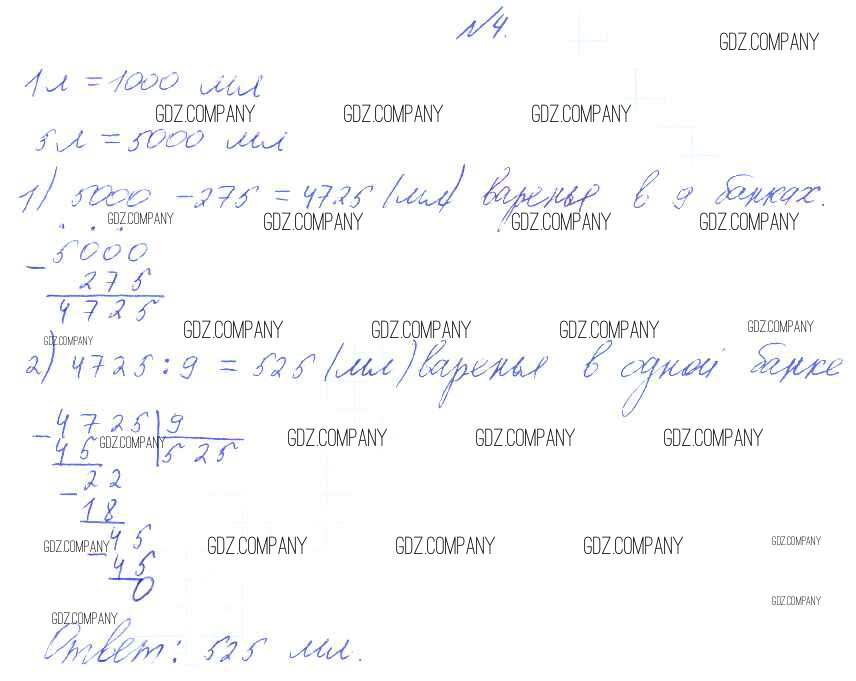 №4.
GDZ.COMPANY
1 л = 1000 мл
GDZ.COMPANY GDZ.COMPANY GDZ.COMPANY
5 л = 5000 мл
1) 5000 - 275 = 4725 (мл) варенья в 9 банках.
GDZ.COMPANY GDZ.COMPANY GDZ.COMPANY GDZ.COMPANY
- 5000
275
4725
GDZ.COMPANY GDZ.COMPANY GDZ.COMPANY GDZ.COMPANY
GDZ.COMPANY
2) 4725 : 9 = 525 (мл) варенья в одной банке
- 4725 | 9
45 525
GDZ.COMPANY GDZ.COMPANY GDZ.COMPANY GDZ.COMPANY
- 22
18
45
GDZ.COMPANY GDZ.COMPANY GDZ.COMPANY GDZ.COMPANY GDZ.COMPANY
- 45
0
GDZ.COMPANY
GDZ.COMPANY
Ответ: 525 мл.